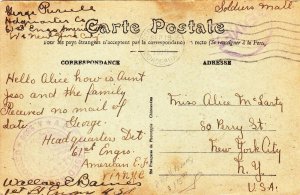 George Purcell
Headquarters Co
61st Engs. American
Soldiers Mail
Carte Postale
Pour les pays étrangers n'acceptent pas la correspondance au recto (Se renseigner à la Poste).
CORRESPONDANCE
ADRESSE
Hello Alice how is Aunt
Jess and the family
Received no mail of
late.
George.
Headquarters Det
61st Engrs.
American E.F.
Miss Alice McLarty
50 Perry St.
New York City
N.Y.
U.S.A.